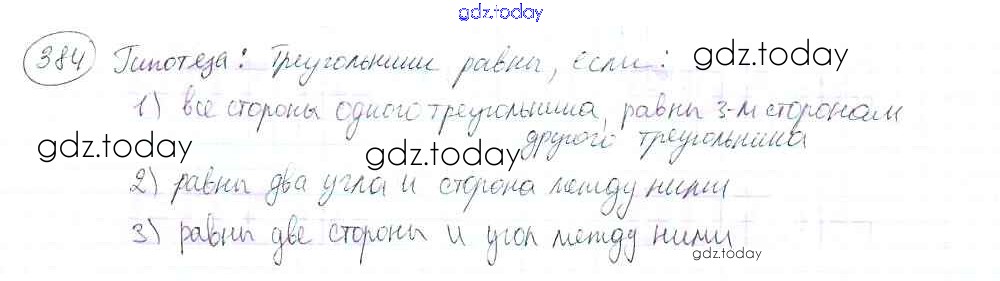 gdz.today
384 Гипотеза: Треугольники равны, если: gdz.today
1) все стороны одного треугольника, равны 3-м сторонам
другого треугольника
gdz.today gdz.today
2) равны два угла и сторона между ними
3) равны две стороны и угол между ними
gdz.today